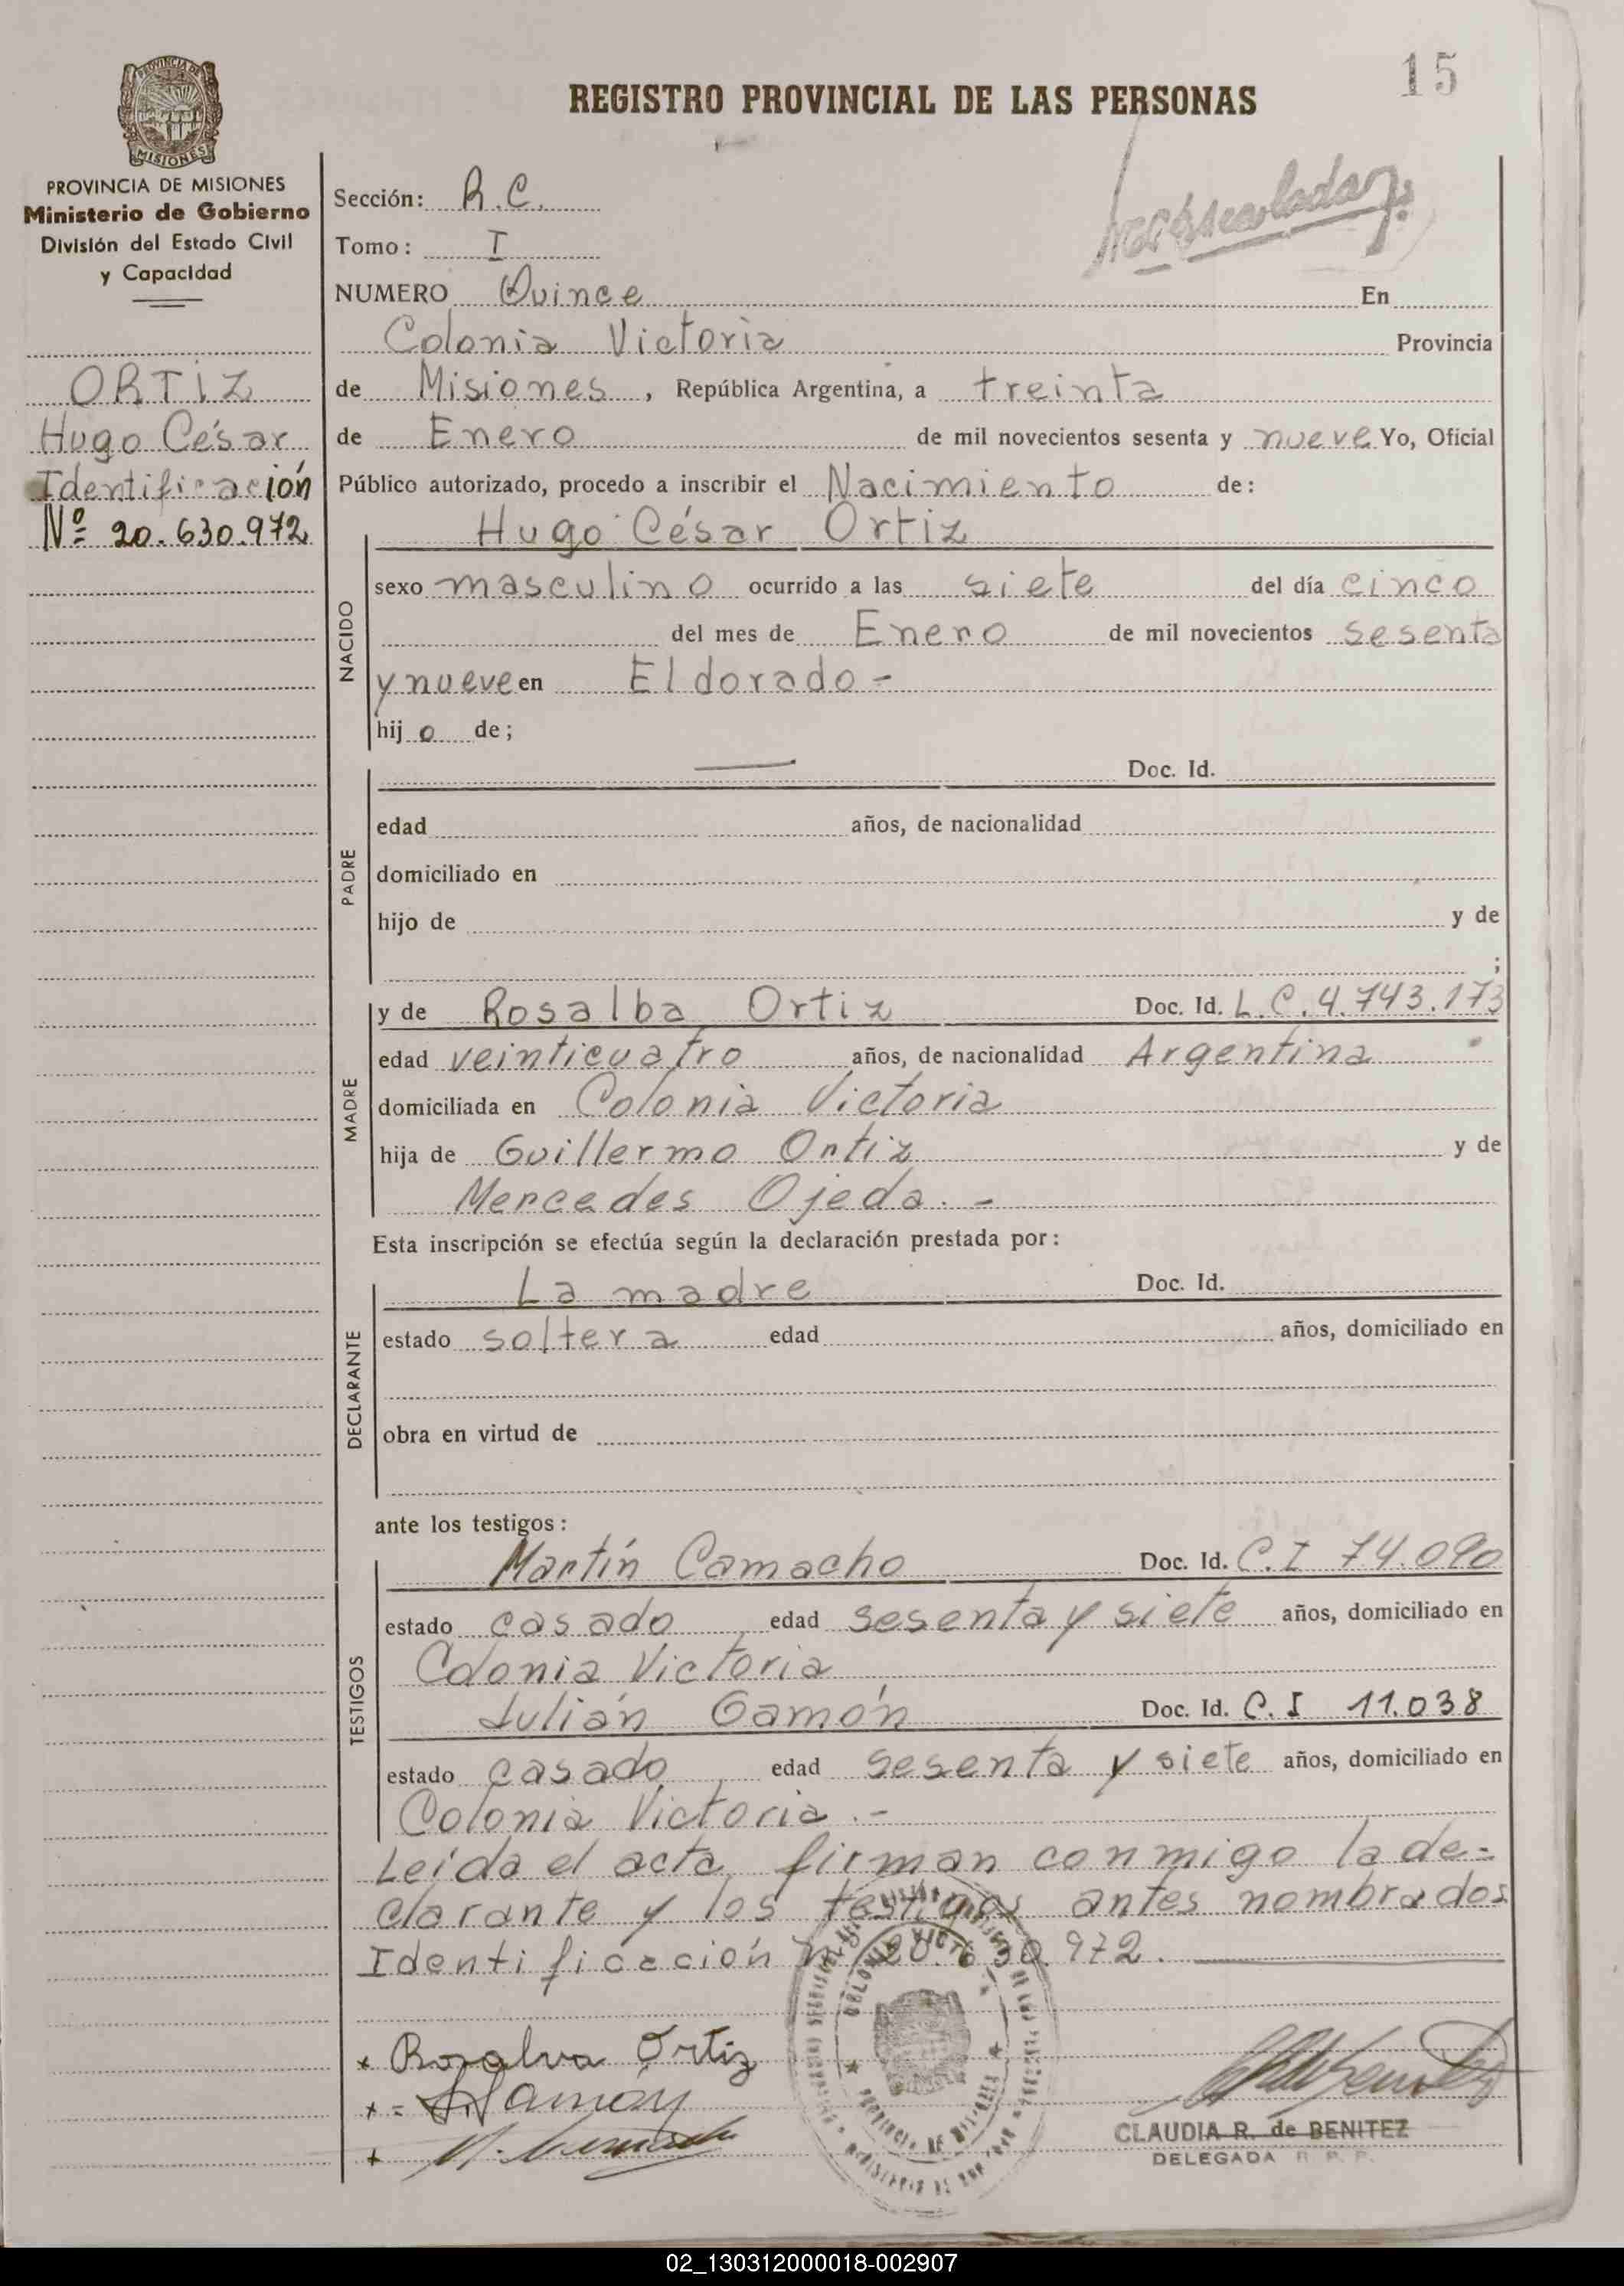 15
REGISTRO PROVINCIAL DE LAS PERSONAS
PROVINCIA DE
MISIONES
PROVINCIA DE MISIONES
Ministerio de Gobierno
División del Estado Civil
y Capacidad
ORTIZ
Hugo César
Identificación
Nº 20.630.972
Sección: R.C.
Tomo: I
NUMERO Quince En
Colonia Victoria Provincia
de Misiones, República Argentina, a treinta
de Enero de mil novecientos sesenta y nueve Yo, Oficial
Público autorizado, procedo a inscribir el Nacimiento de:
NACIDO
Hugo César Ortiz
sexo masculino ocurrido a las siete del día cinco
del mes de Enero de mil novecientos sesenta
y nueve en Eldorado -
hijo de;
PADRE
Doc. Id.
edad años, de nacionalidad
domiciliado en
hijo de y de
;
MADRE
y de Rosalba Ortiz Doc. Id. L.C. 4.743.173
edad veinticuatro años, de nacionalidad Argentina
domiciliada en Colonia Victoria
hija de Guillermo Ortiz y de
Mercedes Ojeda. -
Esta inscripción se efectúa según la declaración prestada por:
DECLARANTE
La madre Doc. Id.
estado soltera edad años, domiciliado en
obra en virtud de
ante los testigos:
TESTIGOS
Martín Camacho Doc. Id. C.I 74.090
estado casado edad sesenta y siete años, domiciliado en
Colonia Victoria
Julián Gamón Doc. Id. C.I 11.038
estado casado edad sesenta y siete años, domiciliado en
Colonia Victoria.-
Leída el acta, firman conmigo la de-
clarante y los testigos antes nombrados
Identificación Nº 20.630.972.
Rosalva Ortiz
CLAUDIA R. de BENITEZ
DELEGADA R. P. P.
02_130312000018-002907